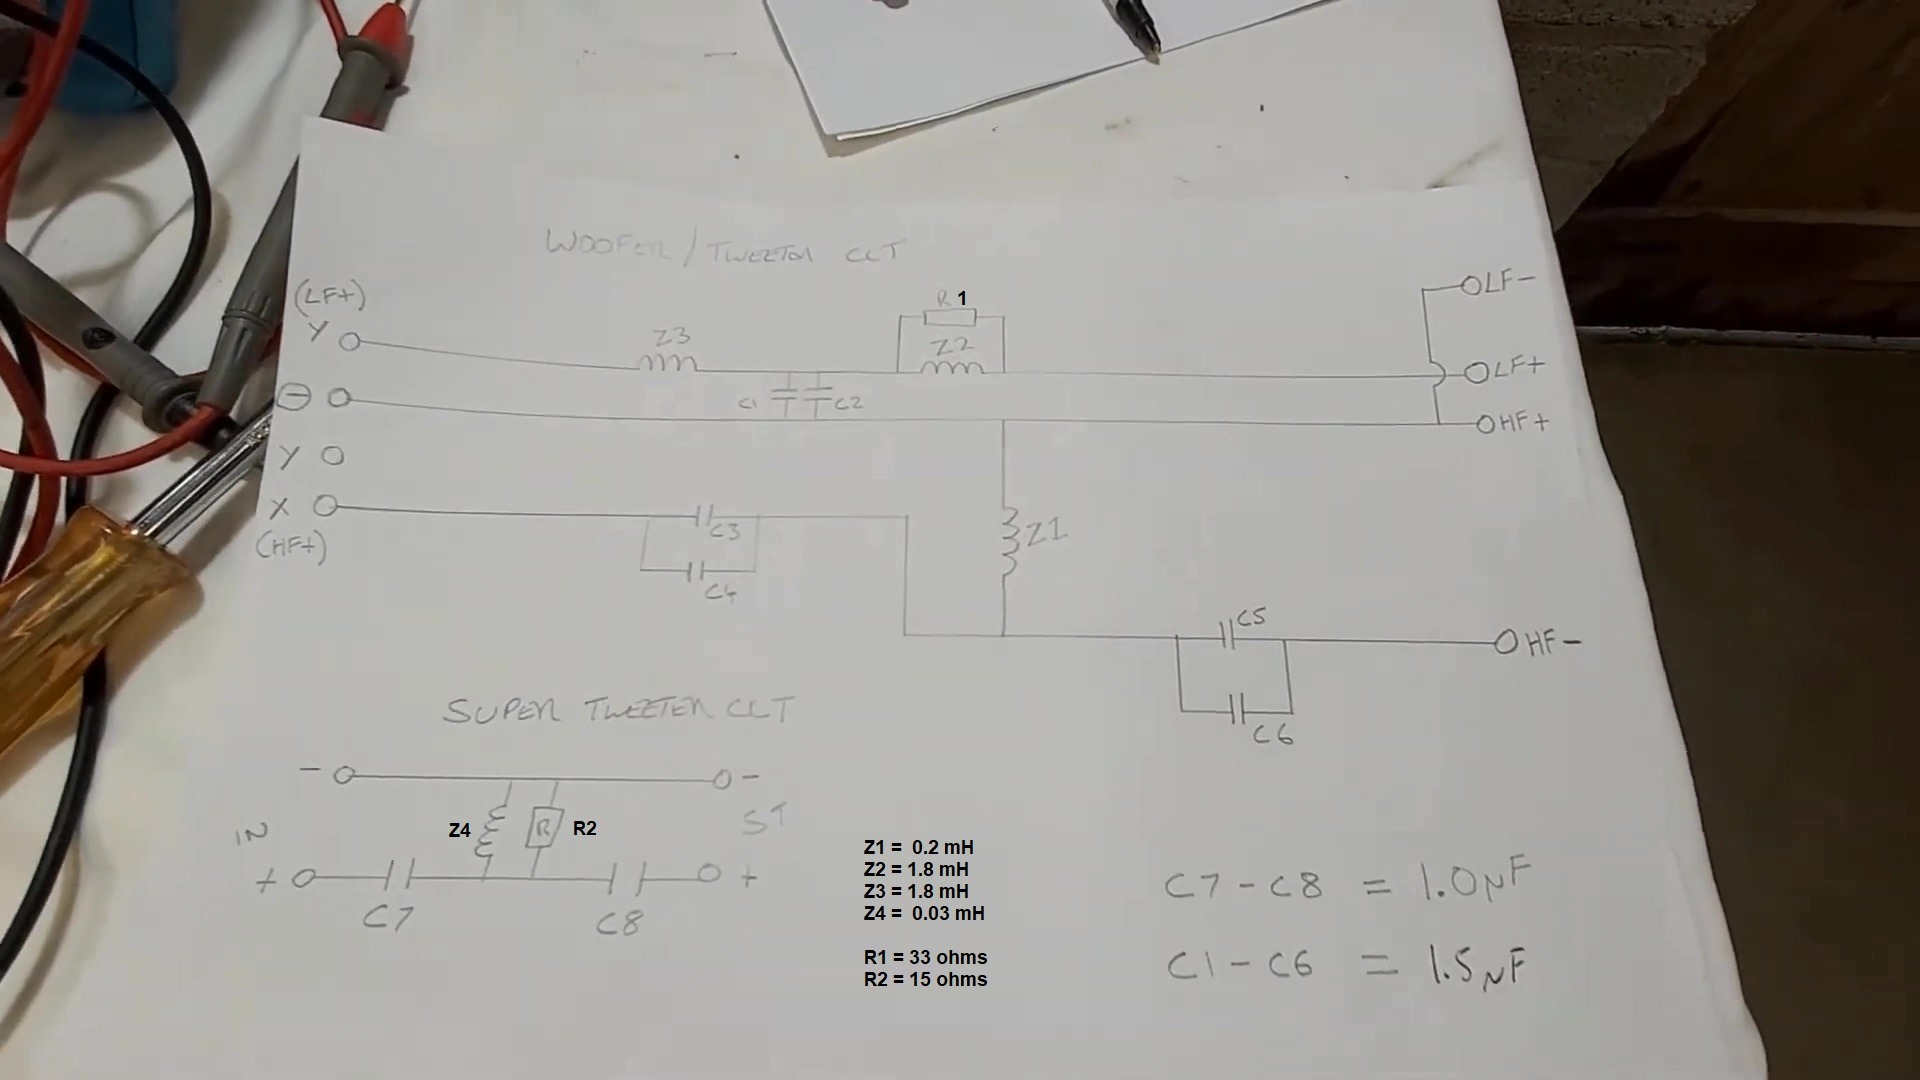 WOOFER / TWEETER CCT
(LF+)
Y
Z3
R 1
Z2
LF-
LF+
⊖
C1
C2
HF+
Y
X
(HF+)
C3
C4
Z1
C5
C6
HF-
SUPER TWEETER CCT
-
-
IN
Z4
R
R2
ST
+
+
C7
C8
Z1 = 0.2 mH
Z2 = 1.8 mH
Z3 = 1.8 mH
Z4 = 0.03 mH
R1 = 33 ohms
R2 = 15 ohms
C7 - C8 = 1.0µF
C1 - C6 = 1.5µF